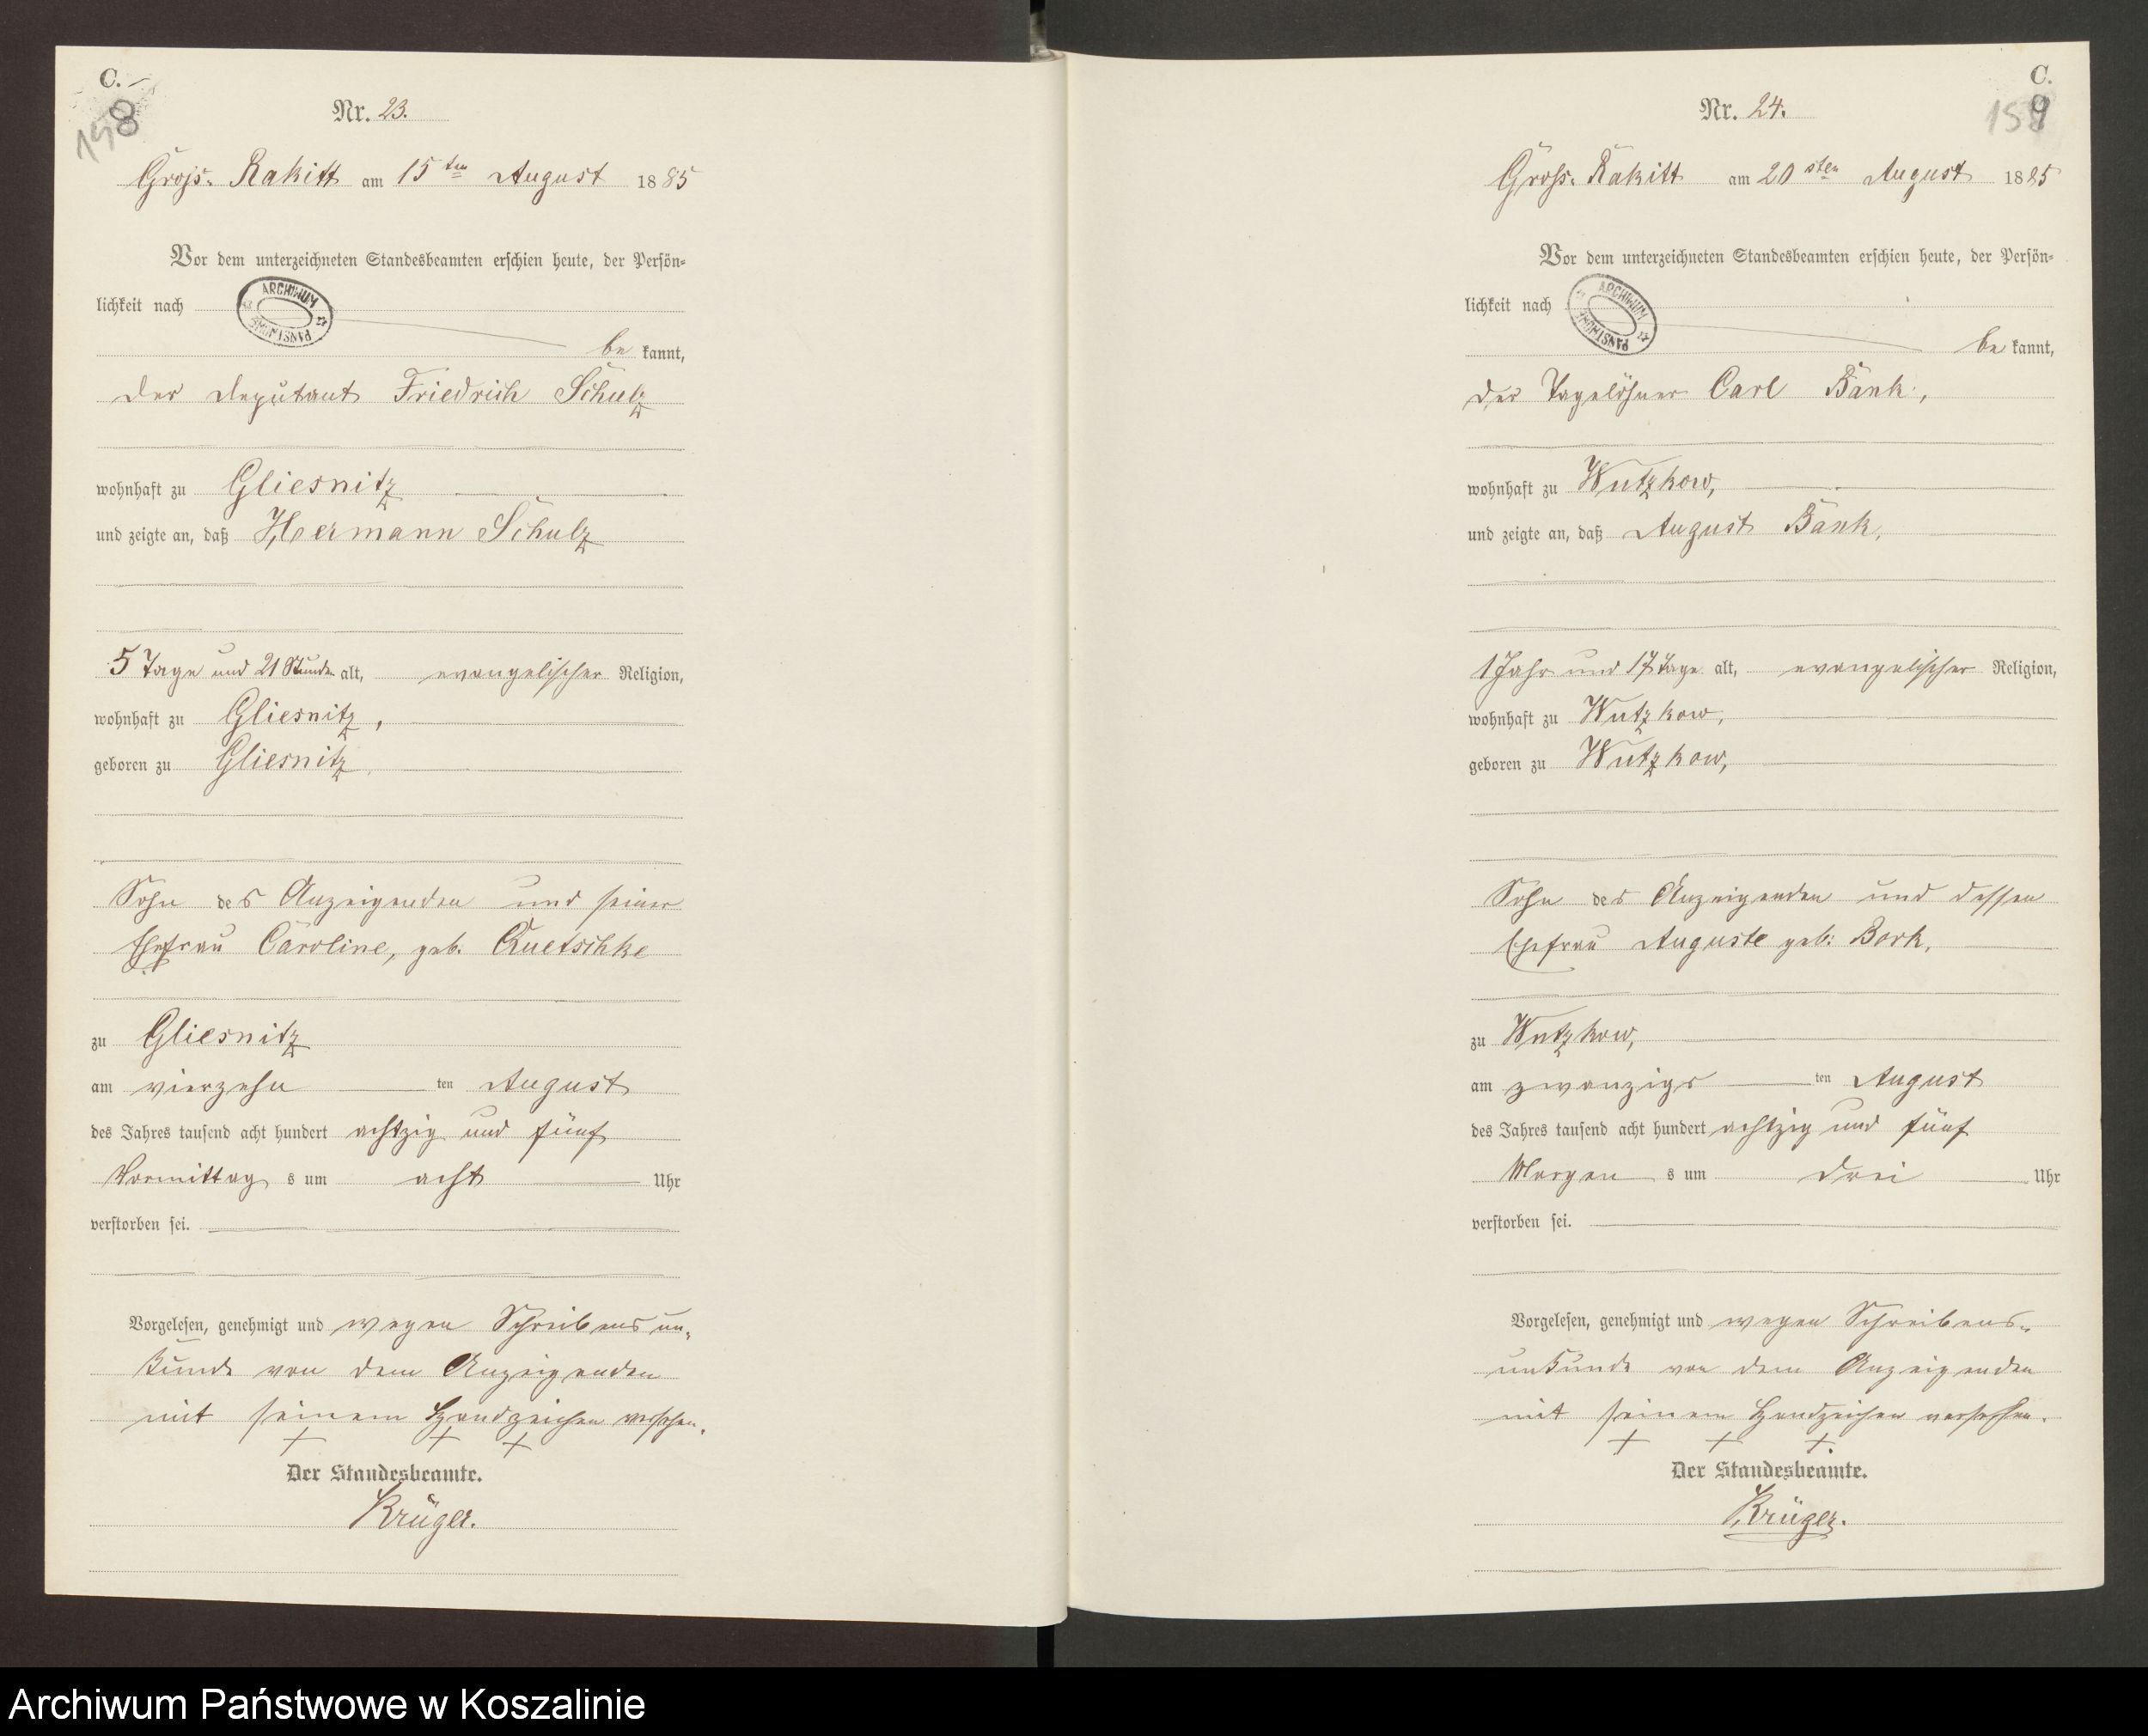 C.
8
Nr. 23.
Gross-Rakitt am 15ten August 1885
Vor dem unterzeichneten Standesbeamten erschien heute, der Persön-
lichkeit nach
ARCHIWUM PAŃSTWOWE
be kannt,
der Deputant Friedrich Schulz
wohnhaft zu Gliesnitz
und zeigte an, daß Hermann Schulz
5 Tage und 21 Stunden alt, evangelischer Religion,
wohnhaft zu Gliesnitz,
geboren zu Gliesnitz,
Sohn des Anzeigenden und seiner
Ehefrau Caroline, geb. Quetschke
zu Gliesnitz
am vierzehn ten August
des Jahres tausend acht hundert achtzig und fünf
Vormittag s um acht Uhr
verstorben sei.
Vorgelesen, genehmigt und wegen Schreibensun-
kunde von dem Anzeigenden
mit seinem Handzeichen versehen.
+ + +
Der Standesbeamte.
Krüger.
C.
9
Nr. 24.
Gross-Rakitt am 20sten August 1885
Vor dem unterzeichneten Standesbeamten erschien heute, der Persön-
lichkeit nach
ARCHIWUM PAŃSTWOWE
be kannt,
der Tagelöhner Carl Bank,
wohnhaft zu Wutzkow,
und zeigte an, daß August Bank,
1 Jahr und 17 Tage alt, evangelischer Religion,
wohnhaft zu Wutzkow,
geboren zu Wutzkow,
Sohn des Anzeigenden und dessen
Ehefrau Auguste geb. Bork,
zu Wutzkow,
am zwanzigs ten August
des Jahres tausend acht hundert achtzig und fünf
Morgen s um drei Uhr
verstorben sei.
Vorgelesen, genehmigt und wegen Schreibens-
unkunde von dem Anzeigenden
mit seinem Handzeichen versehen.
+ + +
Der Standesbeamte.
Krüger.
Archiwum Państwowe w Koszalinie